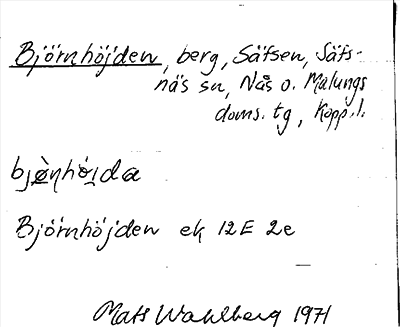 Björnhöjden, berg, Säfsen, Säfs-
näs sn, Nås o. Malungs
doms. tg, Kopp. l.
bjø̀ṇhöi̯da
Björnhöjden ek 12E 2e
Mats Wahlberg 1971